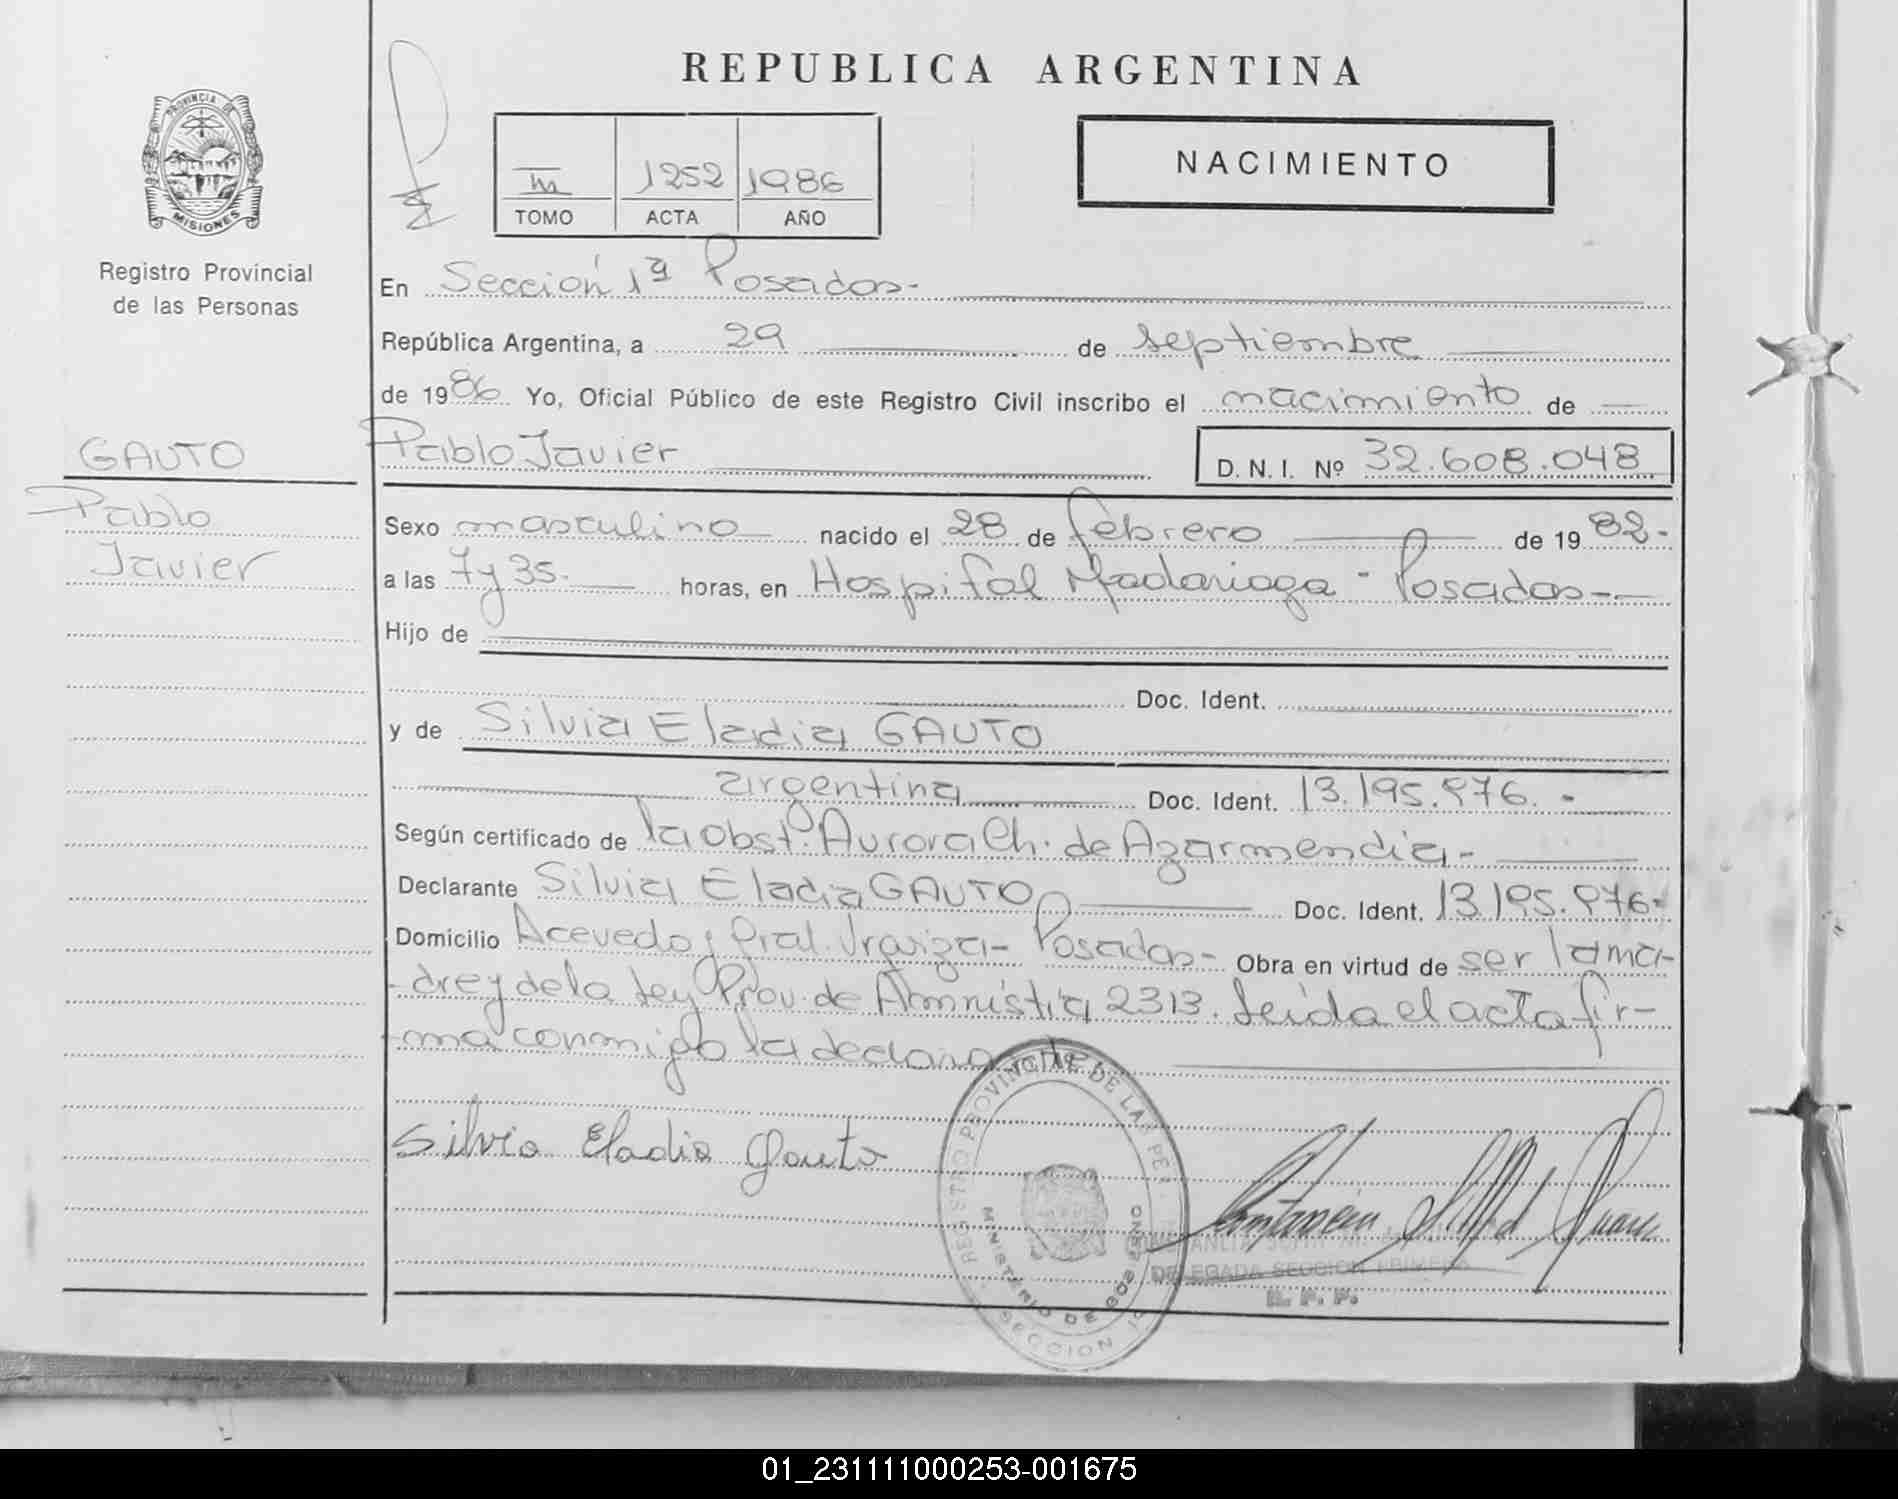 REPUBLICA ARGENTINA
PROVINCIA DE
MISIONES
Registro Provincial
de las Personas
III 1252 1986
TOMO ACTA AÑO
NACIMIENTO
En Sección 1ª Posadas-
República Argentina, a 29 de septiembre
de 1986 Yo, Oficial Público de este Registro Civil inscribo el nacimiento de
GAUTO
Pablo
Javier
Pablo Javier D. N. I. Nº 32.608.048
Sexo masculino nacido el 28 de febrero de 1982-
a las 7 y 35- horas, en Hospital Madariaga - Posadas-
Hijo de
Doc. Ident.
y de Silvia Eladia GAUTO
argentina Doc. Ident. 13.195.976.-
Según certificado de la obst. Aurora Ch. de Azarmendia-
Declarante Silvia Eladia GAUTO Doc. Ident. 13.195.976-
Domicilio Acevedo y Gral. Urquiza- Posadas- Obra en virtud de ser la ma-
-dre y de la Ley Prov. de Amnistia 2313. Leida el acta fir-
-ma conmigo la declarante
Silvia Eladia Gauto
REGISTRO PROVINCIAL DE LAS PER.
MINISTERIO DE GOBIERNO
SECCION 1ª
DELEGADA SECCION PRIMERA
R. P. P.
01_231111000253-001675